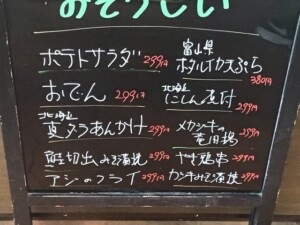 ポテトサラダ 299円
おでん 299円
北海道
真タラあんかけ 299円
鮭切出しみそ漬焼 299円
アジのフライ 299円
富山県
ホタルイカ天ぷら
380円
北海道
にしん煮付 299円
メカジキの
竜田揚 299円
やき鶏串 299円
カジキみそ漬焼 299円